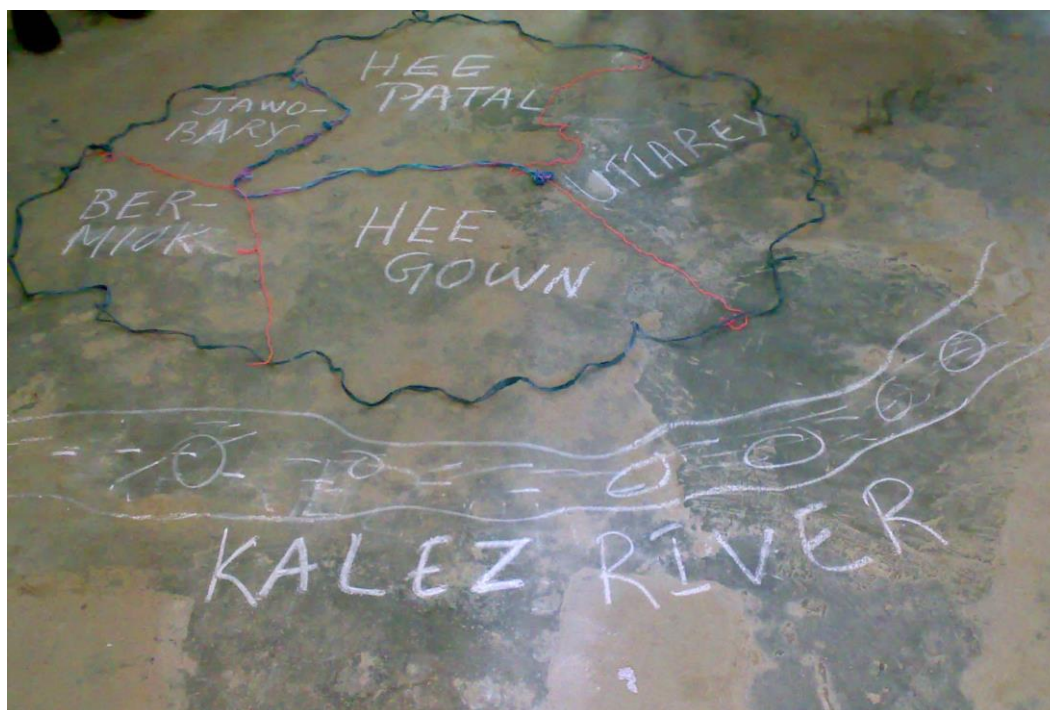 HEE
PATAL
JAWO-
BARY
UTTAREY
BER-
MIOK
HEE
GOWN
KALEZ RIVER